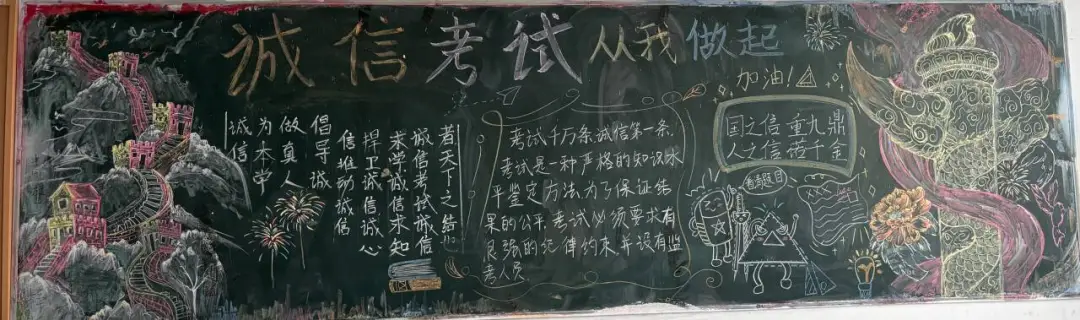 诚信考试从我做起
加油!
诚信
为本学
做真人
倡导诚
信推动诚信
捍卫诚信诚心
求学诚信求知
诚信考试诚信
者天下之结
考试千万条,诚信第一条.
考试是一种严格的知识水
平鉴定方法,为了保证结
果的公平,考试必须要求有
良强的纪律约束,并设有监
考人员
国之信重九鼎
人之信诺千金
看清题目